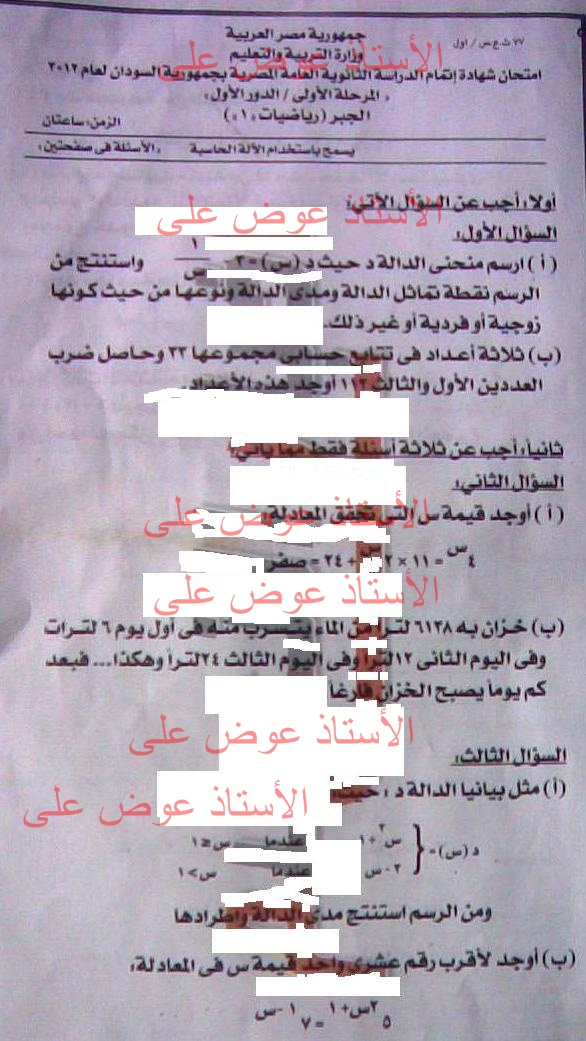 ٧٧ ث.ع.س / أول
جمهورية مصر العربية
وزارة التربية والتعليم
الأستاذ عوض على
امتحان شهادة إتمام الدراسة الثانوية العامة المصرية بجمهورية السودان لعام ٢٠١٢
« المرحلة الأولى / الدور الأول »
الجبر (رياضيات «١»)
الزمن: ساعتان
يسمح باستخدام الآلة الحاسبة
«الأسئلة فى صفحتين»
أولا: أجب عن السؤال الآتي:
الأستاذ عوض على
السؤال الأول:
(أ) ارسم منحنى الدالة د حيث د (س) = ٣ - ١/س واستنتج من
الرسم نقطة تماثل الدالة ومدى الدالة ونوعها من حيث كونها
زوجية أو فردية أو غير ذلك.
(ب) ثلاثة أعداد فى تتابع حسابى مجموعها ٣٣ وحاصل ضرب
العددين الأول والثالث ١١٢ أوجد هذه الأعداد.
ثانياً: أجب عن ثلاثة أسئلة فقط مما يأتى:
السؤال الثاني:
(أ) أوجد قيمة س التى تحقق المعادلة:
الأستاذ عوض على
٤^س = ١١ × ٢^س + ٢٤ = صفر
الأستاذ عوض على
(ب) خزان به ٦١٣٨ لتراً من الماء يتسرب منه فى أول يوم ٦ لترات
وفى اليوم الثانى ١٢ لتراً وفى اليوم الثالث ٢٤ لتراً وهكذا... فبعد
كم يوماً يصبح الخزان فارغاً
الأستاذ عوض على
السؤال الثالث:
(أ) مثل بيانيا الدالة د : حيث:
الأستاذ عوض على
د (س) =
س^٢ + ١ عندما س ≤ ١
٢ - س عندما س > ١
ومن الرسم استنتج مدى الدالة واطرادها
(ب) أوجد لأقرب رقم عشرى واحد قيمة س فى المعادلة:
٥^٢س+١ = ٧^١-س